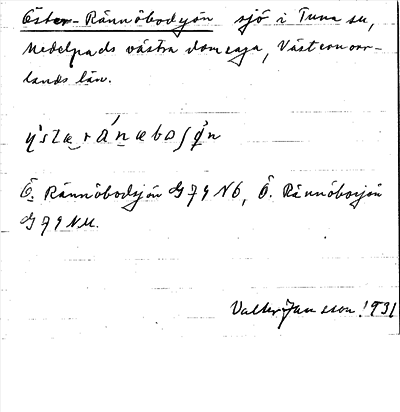 Öster-Rännöbodsjön sjö i Tuna sn,
Medelpads västra domsaga, Västernorr-
lands län.
Ö. Rännöbodsjön G 79 NÖ, Ö. Rännöbosjön
G 79 NU.
Valter Jansson 1931